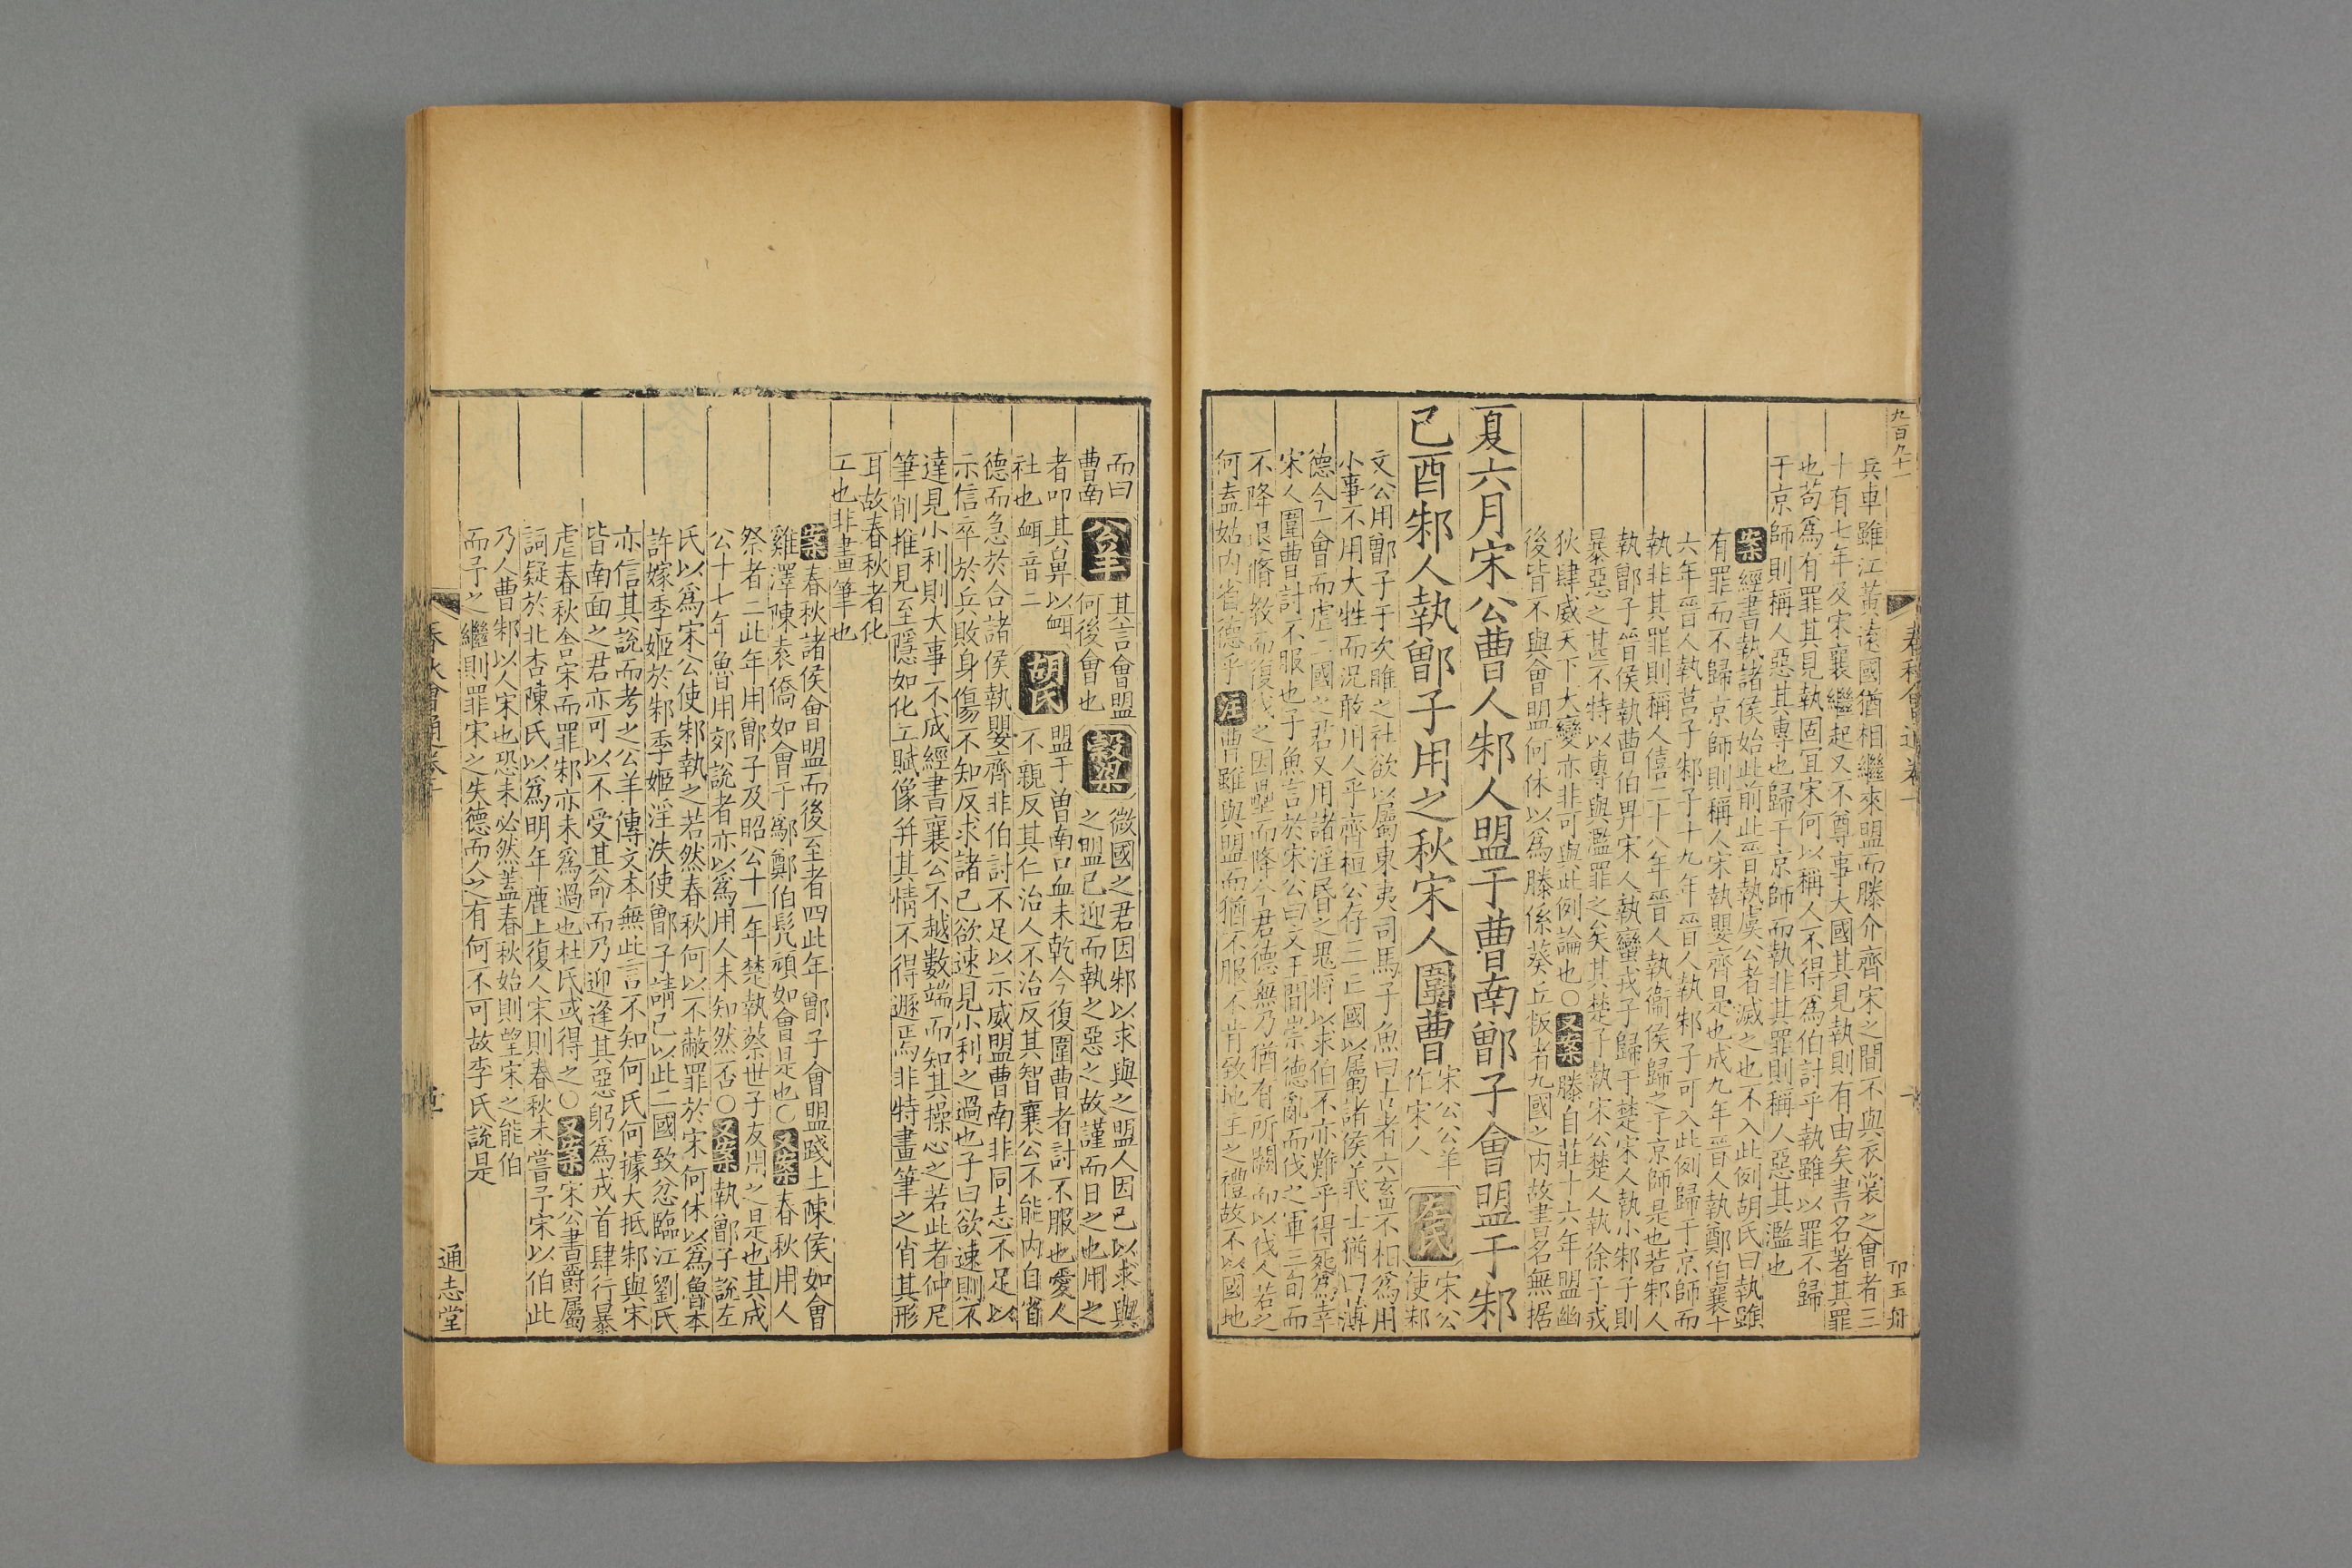 九百九十一
春秋會通卷十
兵車雖江黃遠國猶相繼來盟而滕介齊宋之間不與衣裳之會者三
十有七年及宋襄繼起又不尊事大國其見執則有由矣書名著其罪
也苟爲有罪其見執固宜宋何以稱人不得爲伯討乎執雖以罪不歸
于京師則稱人惡其專也歸于京師而執非其罪則稱人惡其濫也
案經書執諸侯始此前此晉執虞公者滅之也不入此例胡氏曰執雖
有罪而不歸京師則稱人宋執嬰齊是也成九年晉人執鄭伯襄十
六年晉人執莒子邾子十九年晉人執邾子可入此例歸于京師而
執非其罪則稱人僖二十八年晉人執衞侯歸之于京師是也若邾人
執鄫子晉侯執曹伯畀宋人執蠻戎子歸于楚宋人執小邾子則
暴惡之甚不特以專與濫罪之矣其楚子執宋公楚人執徐子戎
狄肆威天下大變亦非可與此例論也○又案滕自莊十六年盟幽
後皆不與會盟何休以爲滕係葵丘叛者九國之内故書名無据
夏六月宋公曹人邾人盟于曹南鄫子會盟于邾
己酉邾人執鄫子用之秋宋人圍曹
宋公公羊
作宋人
左氏
宋公
使邾
文公用鄫子于次睢之社欲以屬東夷司馬子魚曰古者六畜不相爲用
小事不用大牲而況敢用人乎齊桓公存三亡國以屬諸侯義士猶曰薄
德今一會而虐二國之君又用諸淫昏之鬼將以求伯不亦難乎得死爲幸
宋人圍曹討不服也子魚言於宋公曰文王聞崇德亂而伐之軍三旬而
不降退脩敎而復伐之因壘而降今君德無乃猶有所闕而以伐人若之
何盍姑内省德乎注曹雖與盟而猶不服不肯致地主之禮故不以國地
而曰
曹南
公羊
其言會盟
何後會也
穀梁
微國之君因邾以求與之盟人因己以求與
之盟己迎而執之惡之故謹而日之也用之
者叩其鼻以衈
社也衈音二
胡氏
盟于曹南口血未乾今復圍曹者討不服也愛人
不親反其仁治人不治反其智襄公不能内自省
德而急於合諸侯執嬰齊非伯討不足以示威盟曹南非同志不足以
示信卒於兵敗身傷不知反求諸己欲速見小利之過也子曰欲速則不
達見小利則大事不成經書襄公不越數端而知其操心之若此者仲尼
筆削推見至隱如化工賦像并其情不得遯焉非特畫筆之肖其形
耳故春秋者化
工也非畫筆也
案春秋諸侯會盟而後至者四此年鄫子會盟踐土陳侯如會
雞澤陳袁僑如會于鄬鄭伯髠頑如會是也○又案春秋用人
祭者二此年用鄫子及昭公十一年楚執蔡世子友用之是也其成
公十七年魯用郊說者亦以爲用人未知然否○又案執鄫子說左
氏以爲宋公使邾執之若然春秋何以不蔽罪於宋何休以爲魯本
許嫁季姬於邾季姬淫泆使鄫子請己以此二國致忿臨江劉氏
亦信其說而考之公羊傳文本無此言不知何氏何據大抵邾與宋
皆南面之君亦可以不受其命而乃迎逢其惡躬爲戎首肆行暴
虐春秋舍宋而罪邾亦未爲過也杜氏或得之○又案宋公書爵屬
詞疑於北杏陳氏以爲明年鹿上復人宋則春秋未嘗予宋以伯此
乃人曹邾以人宋也恐未必然蓋春秋始則望宋之能伯
而予之繼則罪宋之失德而人之有何不可故李氏說是
春秋會通卷十
通志堂